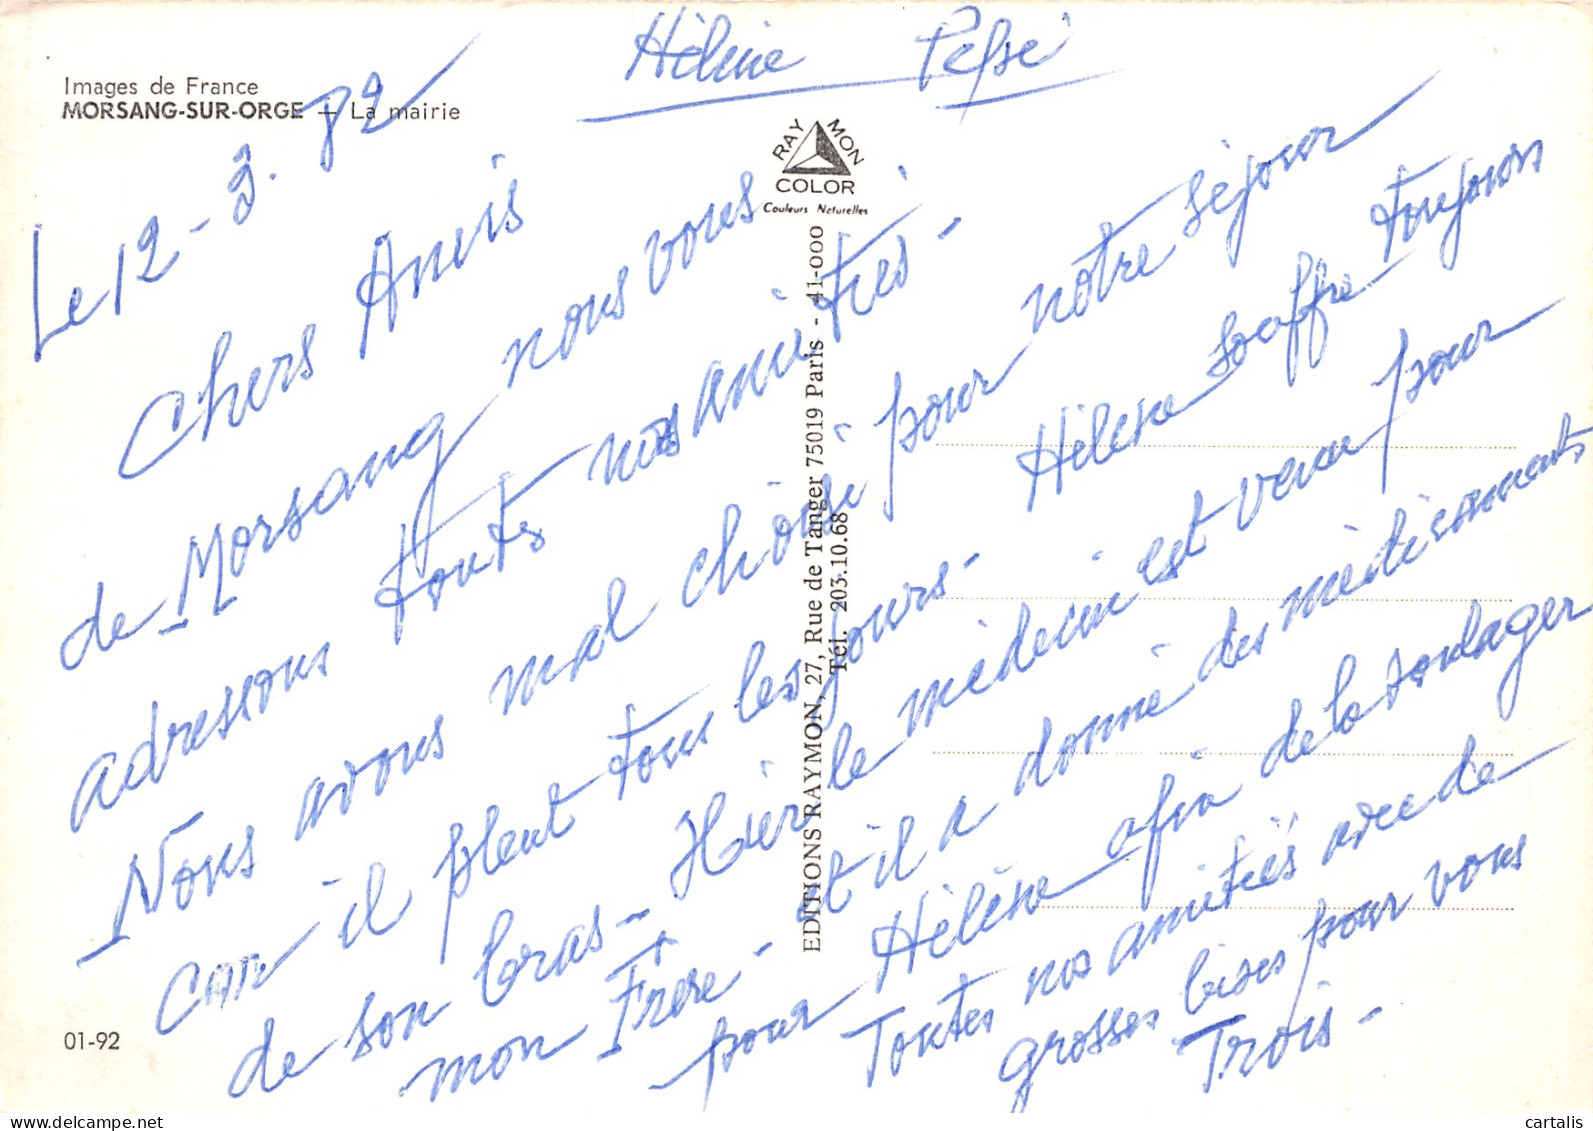 Hélène Pepé
Images de France
MORSANG-SUR-ORGE — La mairie
Le 12-3.82
RAYMON
COLOR
Couleurs Naturelles
Chers Amis
de Morsang nous vous
adressons toutes nos amitiés-
Nous avons mal choisi pour notre séjour
car il pleut tous les jours- Hélène souffre toujours
de son bras- Hier le médecin est venu pour
mon Frère- et il a donné des médicaments
pour Hélène afin de la soulager
Toutes nos amitiés avec de
grosses bises pour vous
Trois-
EDITIONS RAYMON, 27, Rue de Tanger 75019 Paris - 41-000
Tél. 203.10.68
01-92
cartalis